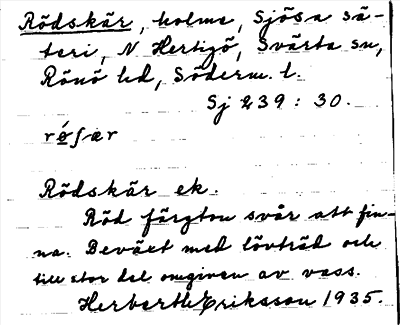 Rödskär, holme, Sjösa sä-
teri, N Hertigö, Svärta sn,
Rönö hd, Söderm. l.
Sj 239 : 30.

Rödskär ek.
Röd färgton svår att fin-
na. Beväxt med lövträd och
till stor del omgiven av vass.
Herbert Eriksson 1935.